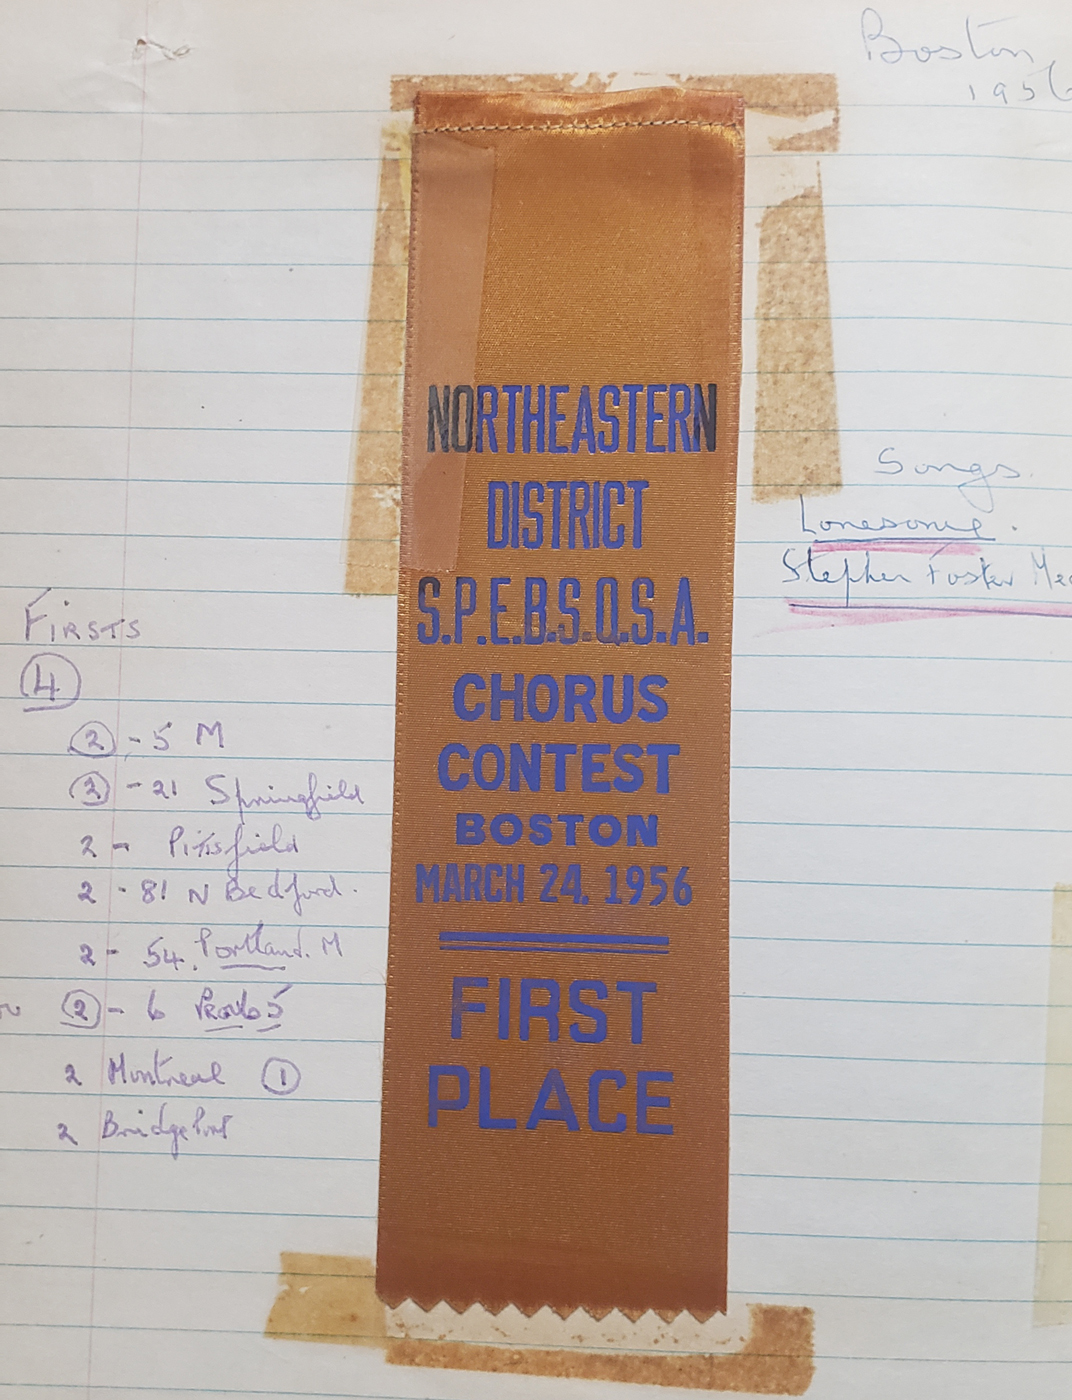 Boston,
1956
NORTHEASTERN
DISTRICT
S.P.E.B.S.Q.S.A.
CHORUS
CONTEST
BOSTON
MARCH 24, 1956
FIRST
PLACE
Songs.
Lonesome.
Stephen Foster
FIRSTS
4
2 - 5 M
- 21 Springfield
2 - Pittsfield
2 - 81 N Bedford.
2 - 54. Portland. M
2 - 6
2 Montreal 1
2 Bridgeport